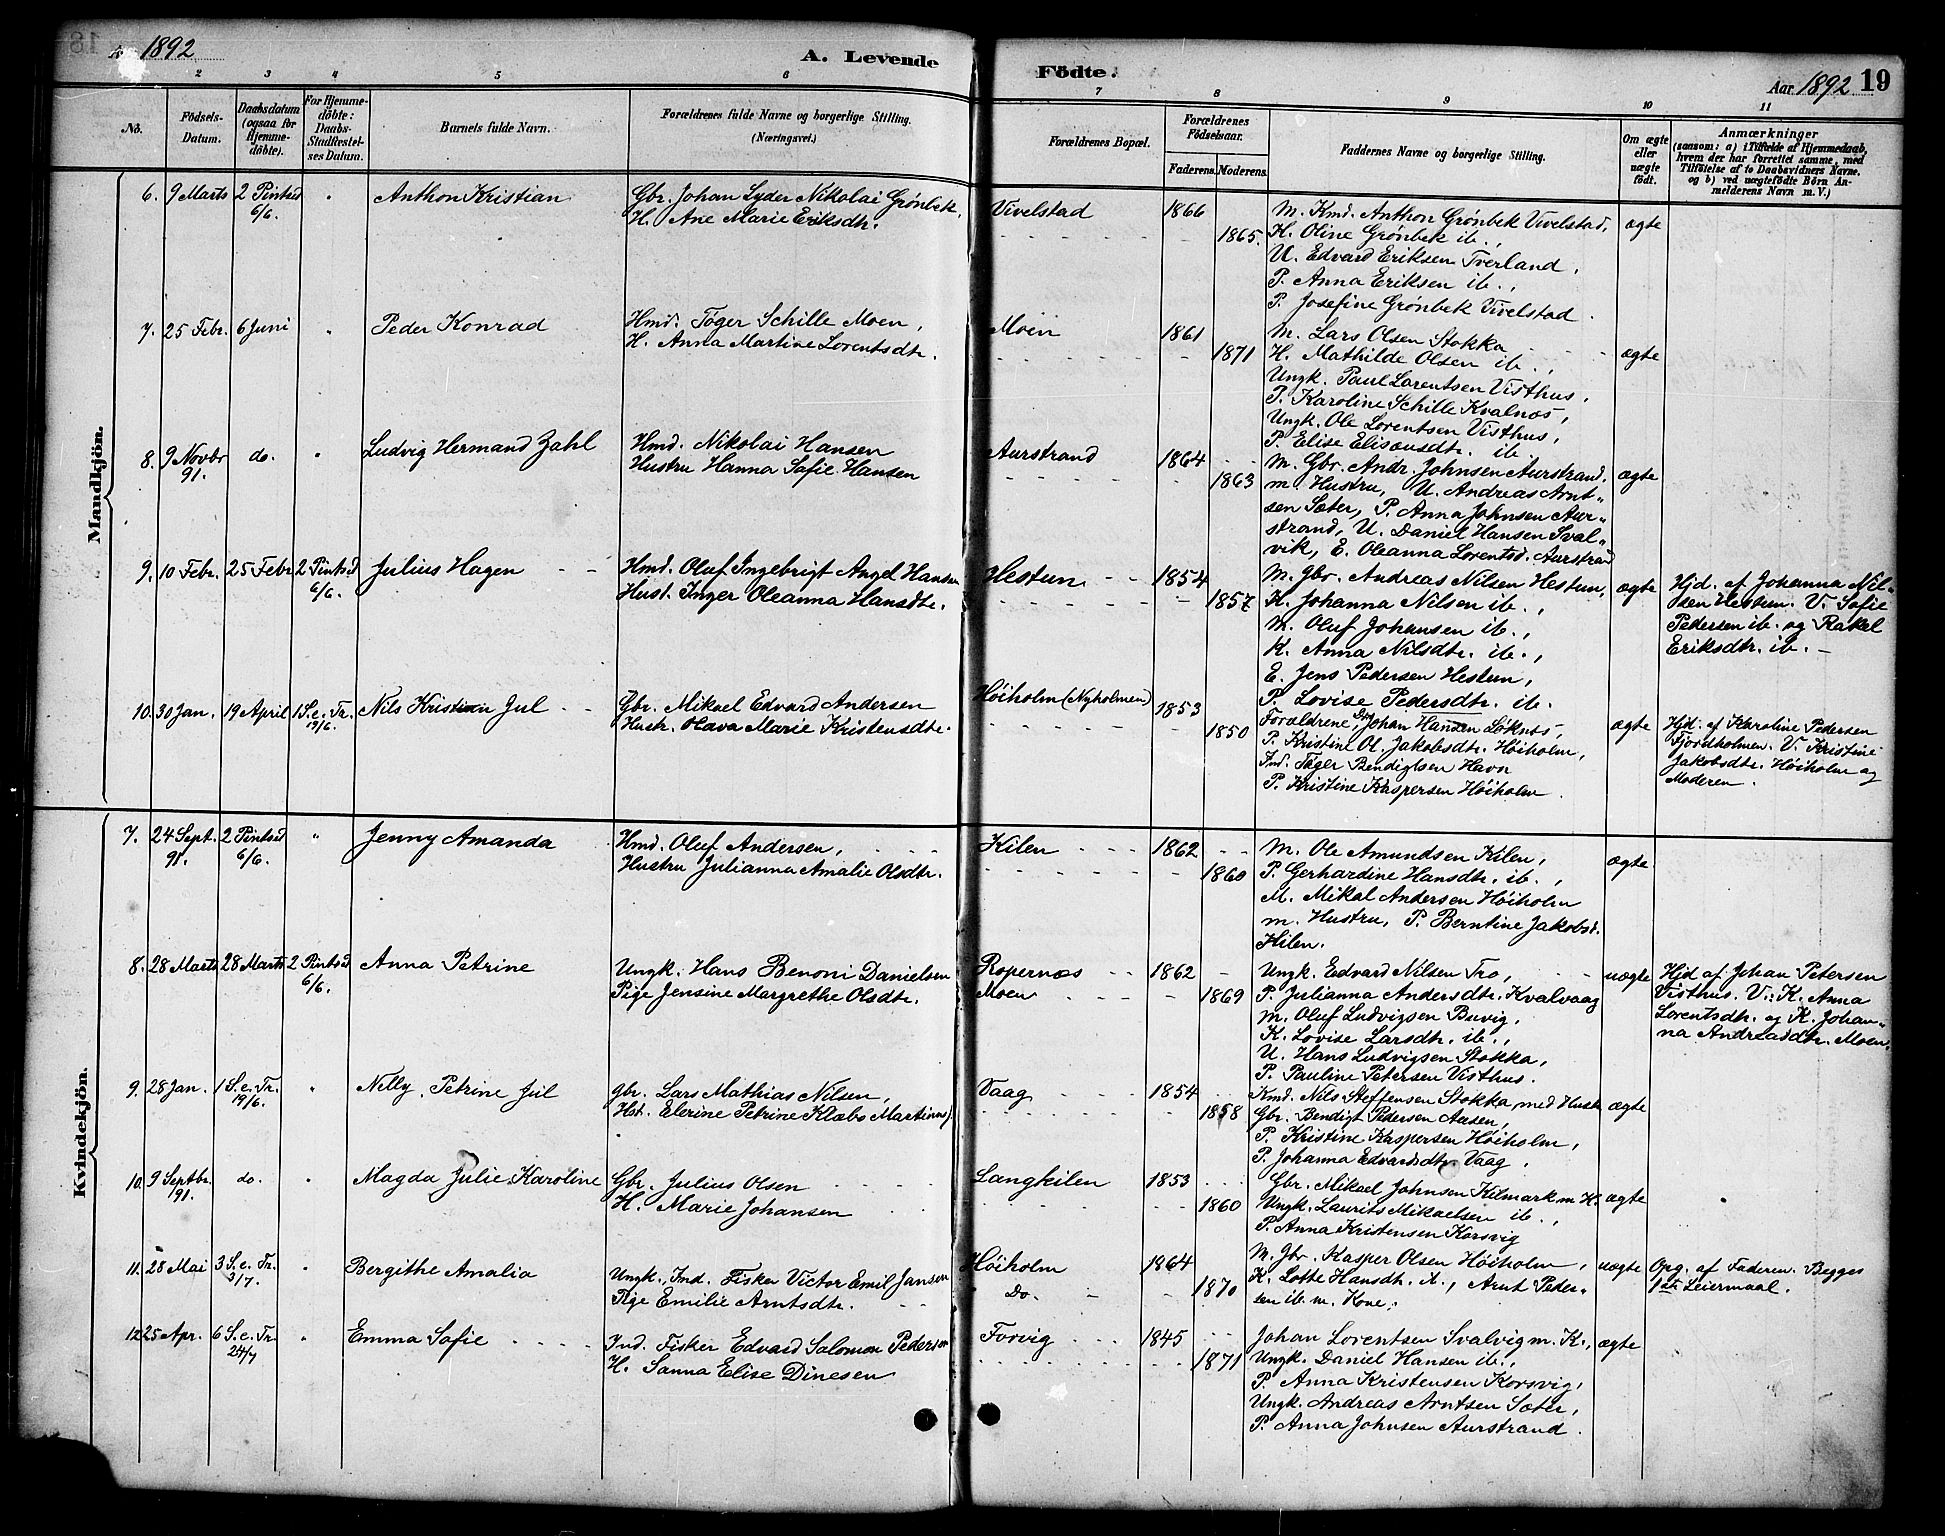 Aar 1892
A. Levende
Födte.
Aar 1892 19
2 3 4 5 6 7 8 9 10 11
No.
Födsels-Datum.
Daabsdatum (ogsaa for Hjemme-döbte).
For Hjemme-döbte: Daabs-Stadfæstel-ses Datum.
Barnets fulde Navn.
Forældrenes fulde Navne og borgerlige Stilling.
(Næringsvei.)
Forældrenes Bopæl.
Forældrenes Födselsaar.
Faderens. Moderens.
Faddernes Navne og borgerlige Stilling.
Om ægte eller uægte födt.
Anmærkninger
(saasom: a) i Tilfælde af Hjemmedaab,
hvem der har forrettet samme, med
Tilföielse af to Daabsvidners Navne,
og b) ved uægtefödte Börn An-
melderens Navn m. V.)
Mandkjön.
6. 9 Marts 2 Pintsd 6/6. " Anthon Kristian
Gbr. Johan Lyder Nikolai Grønbek,
H. Ane Marie Eriksdtr.
Vivelstad 1866 1865.
M. Kmd. Anthon Grønbek Vivelstad,
K. Oline Grønbek ib.,
U. Edvard Eriksen Tverland,
P. Anna Eriksen ib.,
P. Josefine Grønbek Vivelstad.
ægte
7. 25 Febr. 6 Juni " Peder Konrad
Hmd. Tøger Schille Moen,
H. Anna Martine Lorentsdtr.
Moen 1861 1871
M. Lars Olsen Stokka
H. Mathilde Olsen ib.,
Ungk. Paul Lorentsen Visthus,
P. Karoline Schille Kvalnæs,
Ungk. Ole Lorentsen Visthus,
P. Elise Elisæusdtr. ib.
ægte
8. 9 Novbr 91. do. " Ludvig Hermand Zahl
Hmd. Nikolai Hansen
Hustru Hanna Sofie Hansen
Aurstrand 1864 1863
M. Gbr. Andr. Johnsen Aurstrand,
m. Hustru, U. Andreas Arnt-
sen Sæter, P. Anna Johnsen Aur-
strand, U. Daniel Hansen Sval-
vik, E. Oleanna Lorentsd. Aurstrand
ægte
9. 10 Febr. 25 Febr 2 Pintsd 6/6. Julius Hagen
Hmd. Oluf Ingebrigt Angel Hansen
Hust. Inger Oleanna Hansdtr.
Hestun 1854 1857
M. Gbr. Andreas Nilsen Hestun,
K. Johanna Nilsen ib.,
M. Oluf Johansen ib.,
K. Anna Nilsdtr. ib.,
E. Jens Pedersen Hestun,
P. Lovise Pedersdtr. ib.
ægte
Hjd. af Johanna Nil-
sen Hestun. V. Sofie
Pedersen ib. og Rakel
Eriksdtr. ib.
10. 30 Jan. 19 April 1 S. e. Tr. 19/6. Nils Kristian Jul
Gbr. Mikael Edvard Andersen
Hustr. Olava Marie Kristensdtr.
Høiholm (Nyholmen) 1853 1850
Forældrene, Gbr. Johan Hansen Løknes,
P. Kristine Ol. Jakobsdtr. Høiholm,
Ind. Tøger Bendigtsen Havn
P. Kristine Kaspersen Høiholm.
ægte
Hjd. af Karoline Pedersen
Fjordholmen. V. Kristine
Jakobsdtr. Høiholm og
Moderen.
Kvindekjön.
7. 24 Sept. 91. 2 Pintsd 6/6. " Jenny Amanda
Hmd. Oluf Andersen,
Hustru Julianna Amalie Olsdtr.
Kilen 1862 1860
M. Ole Amundsen Kilen,
P. Gerhardine Hansdtr. ib.,
M. Mikal Andersen Høiholm
m. Hustru, P. Berntine Jakobsd.
Hilen.
ægte
8. 28 Marts 28 Marts 2 Pintsd 6/6. Anna Petrine
Ungk. Hans Benoni Danielsen
Pige Jensine Margrethe Olsdtr.
Ropernæs 1862
Moen 1869
Ungk. Edvard Nilsen Tro,
P. Julianna Andersdtr. Kvalvaag
M. Oluf Ludvigsen Buvig,
K. Lovise Larsdtr. ib.,
U. Hans Ludvigsen Stokka,
P. Pauline Petersen Visthus.
uægte
Hjd af Johan Petersen
Visthus. V.: K. Anna
Lorentsdtr. og K. Johan-
na Andreasdtr. Moen.
9. 28 Jan. 1 S. e. Tr. 19/6. " Nelly Petrine Jul
Gbr. Lars Mathias Nilsen,
Hst. Elerine Petrine Klabo Martinusd
Vaag 1854 1858
Kmd. Nils Steffensen Stokka med Hustr
Gbr. Bendigt Pedersen Aasen,
P. Kristine Kaspersen Høiholm,
P. Johanna Edvardsdtr. Vaag.
ægte
10. 9 Septbr. 91. do. " Magda Julie Karoline
Gbr. Julius Olsen
H. Marie Johansen
Langkilen 1853 1860
Gbr. Mikael Johnsen Kilmark m. H.
Ungk. Laurits Mikaelsen ib.,
P. Anna Kristensen Korsvig
ægte
11. 28 Mai 3 S. e. Tr. 3/7. " Bergithe Amalia
Ungk. Ind. Fisker Victor Emil Jansen
Pige Emilie Arntsdtr.
Høiholm 1864
Do. 1870
M. Gbr. Kasper Olsen Høiholm,
K. Lotte Hansdtr. ib., Arnt Peder-
sen ib. m. Kone.
uægte
Opg. af Faderen. Begges
1ste Leiermaal.
12. 25 Apr. 6 S. e. Tr. 24/7 " Emma Sofie
Ind. Fisker Edvard Salomon Pedersen
H. Sanna Elise Dinesen
Forvig 1845 1871
Johan Lorentsen Svalvig m. K.,
Ungk. Daniel Hansen ib.,
P. Anna Kristensen Korsvig,
Ungk. Andreas Arntsen Sæter,
P. Anna Johnsen Aurstrand.
ægte